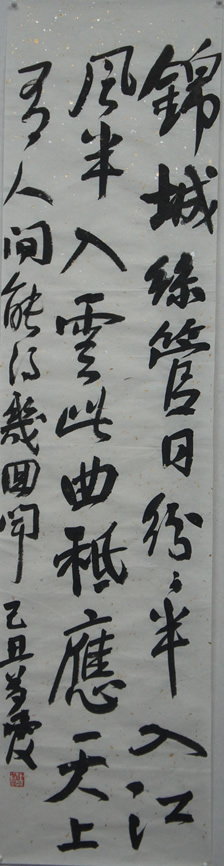 錦城絲管日紛〻半入江
風半入雲此曲祗應天上
有人間能得幾回聞 己丑